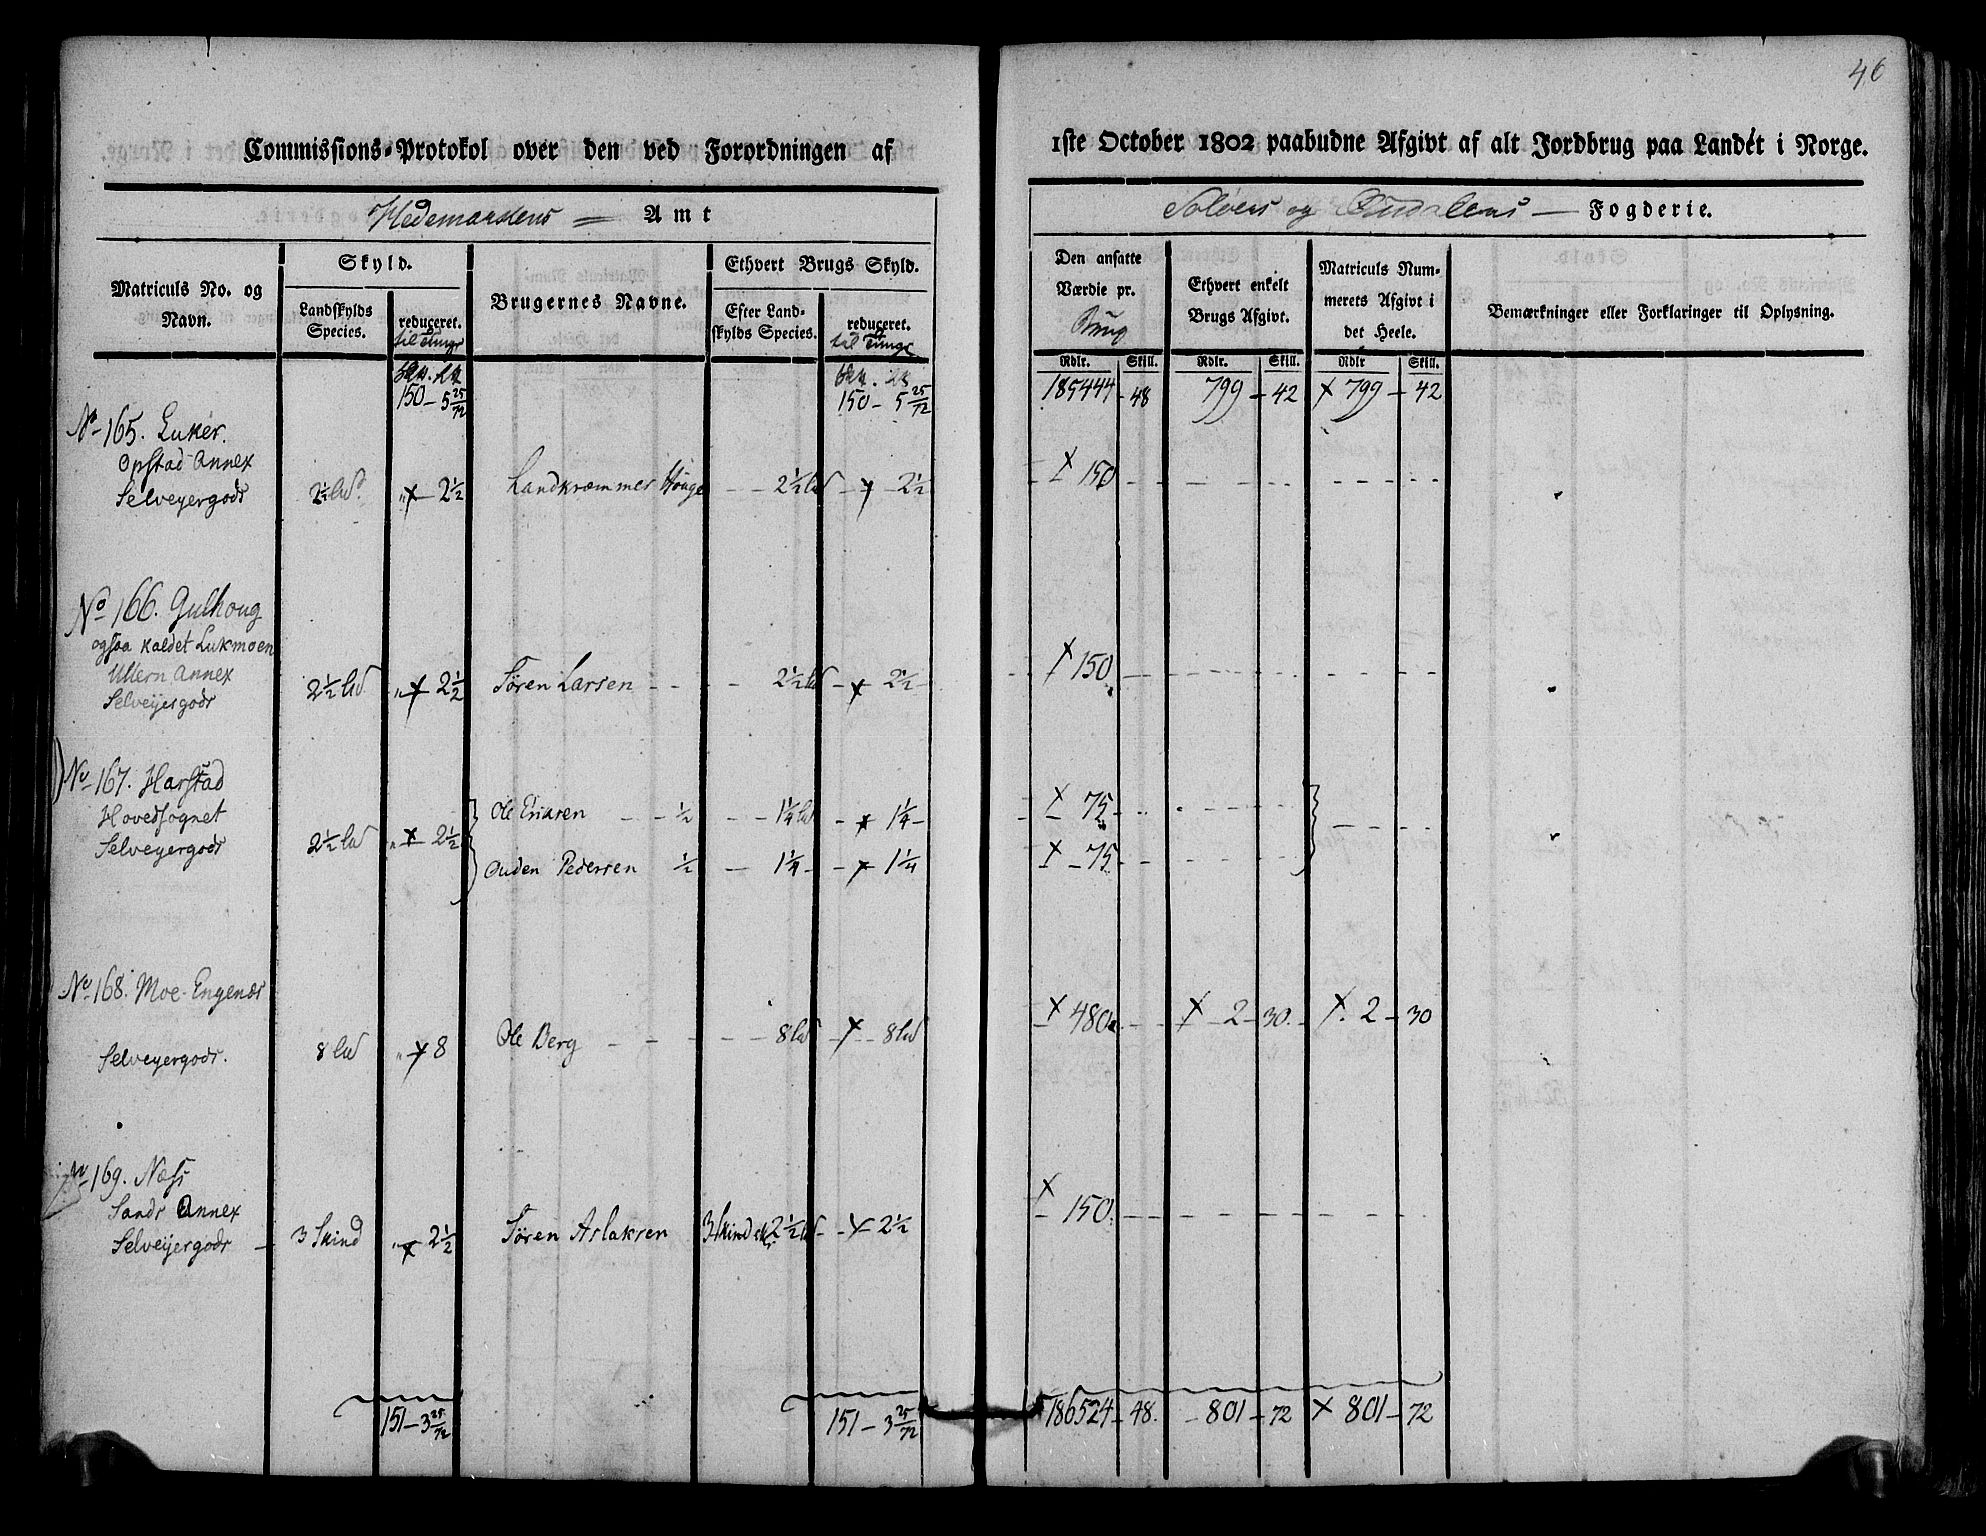 46
Commissions-Protokol over den ved Forordningen af 1ste October 1802 paabudne Afgivt af alt Jordbrug paa Landet i Norge.
Hedemarkens Amt
Soløers og Fogderie.
Matriculs No. og Navn.
Skyld.
Landskylds Species.
reduceret.
til Tunge
Brugernes Navne.
Ethvert Brugs Skyld.
Efter Landskylds Species.
reduceret.
til Tunge
Den ansatte Værdie pr.
Brug
Rdlr. Skill.
Ethvert enkelt Brugs Afgivt.
Rdlr. Skill.
Matriculs Nummerets Afgivt i det Heele.
Rdlr Skill.
Bemærkninger eller Forklaringer til Oplysning.
150 - 5 25/72 150 - 5 25/72 185444 - 48 799 - 42 x 799 - 42
No 165. Luker.
Opstad Annex
Selveyergods 2½ x 2½ Landkræmmer Houge 2½ x 2½ x 150
No 166. Gulhoug
ogsaa kaldet Lukmoen
Ullern Annex
Selveijergods 2½ x 2½ Sören Larsen 2½ x 2½ x 150
No 167. Harstad
Hovedsognet
Selveyergods 2½ x 2½
Ole Eriksen ½ 1¼ x 1¼ x 75
Ouden Pedersen ½ 1¼ x 1¼ x 75
No 168. Moe-Engenæs
Selveyergods. 8 x 8 Ole Berg 8 x 8 x 480 x 2 - 30. x. 2 - 30
No 169. Næss
Sands Annex
Selveijergods 3 Skind x 2½ Sören Aslaksen 3 Skind 2½ x 2½ x 150.
151 - 3 25/72 151 - 3 25/72 186524 - 48. 801 - 72 x 801 - 72